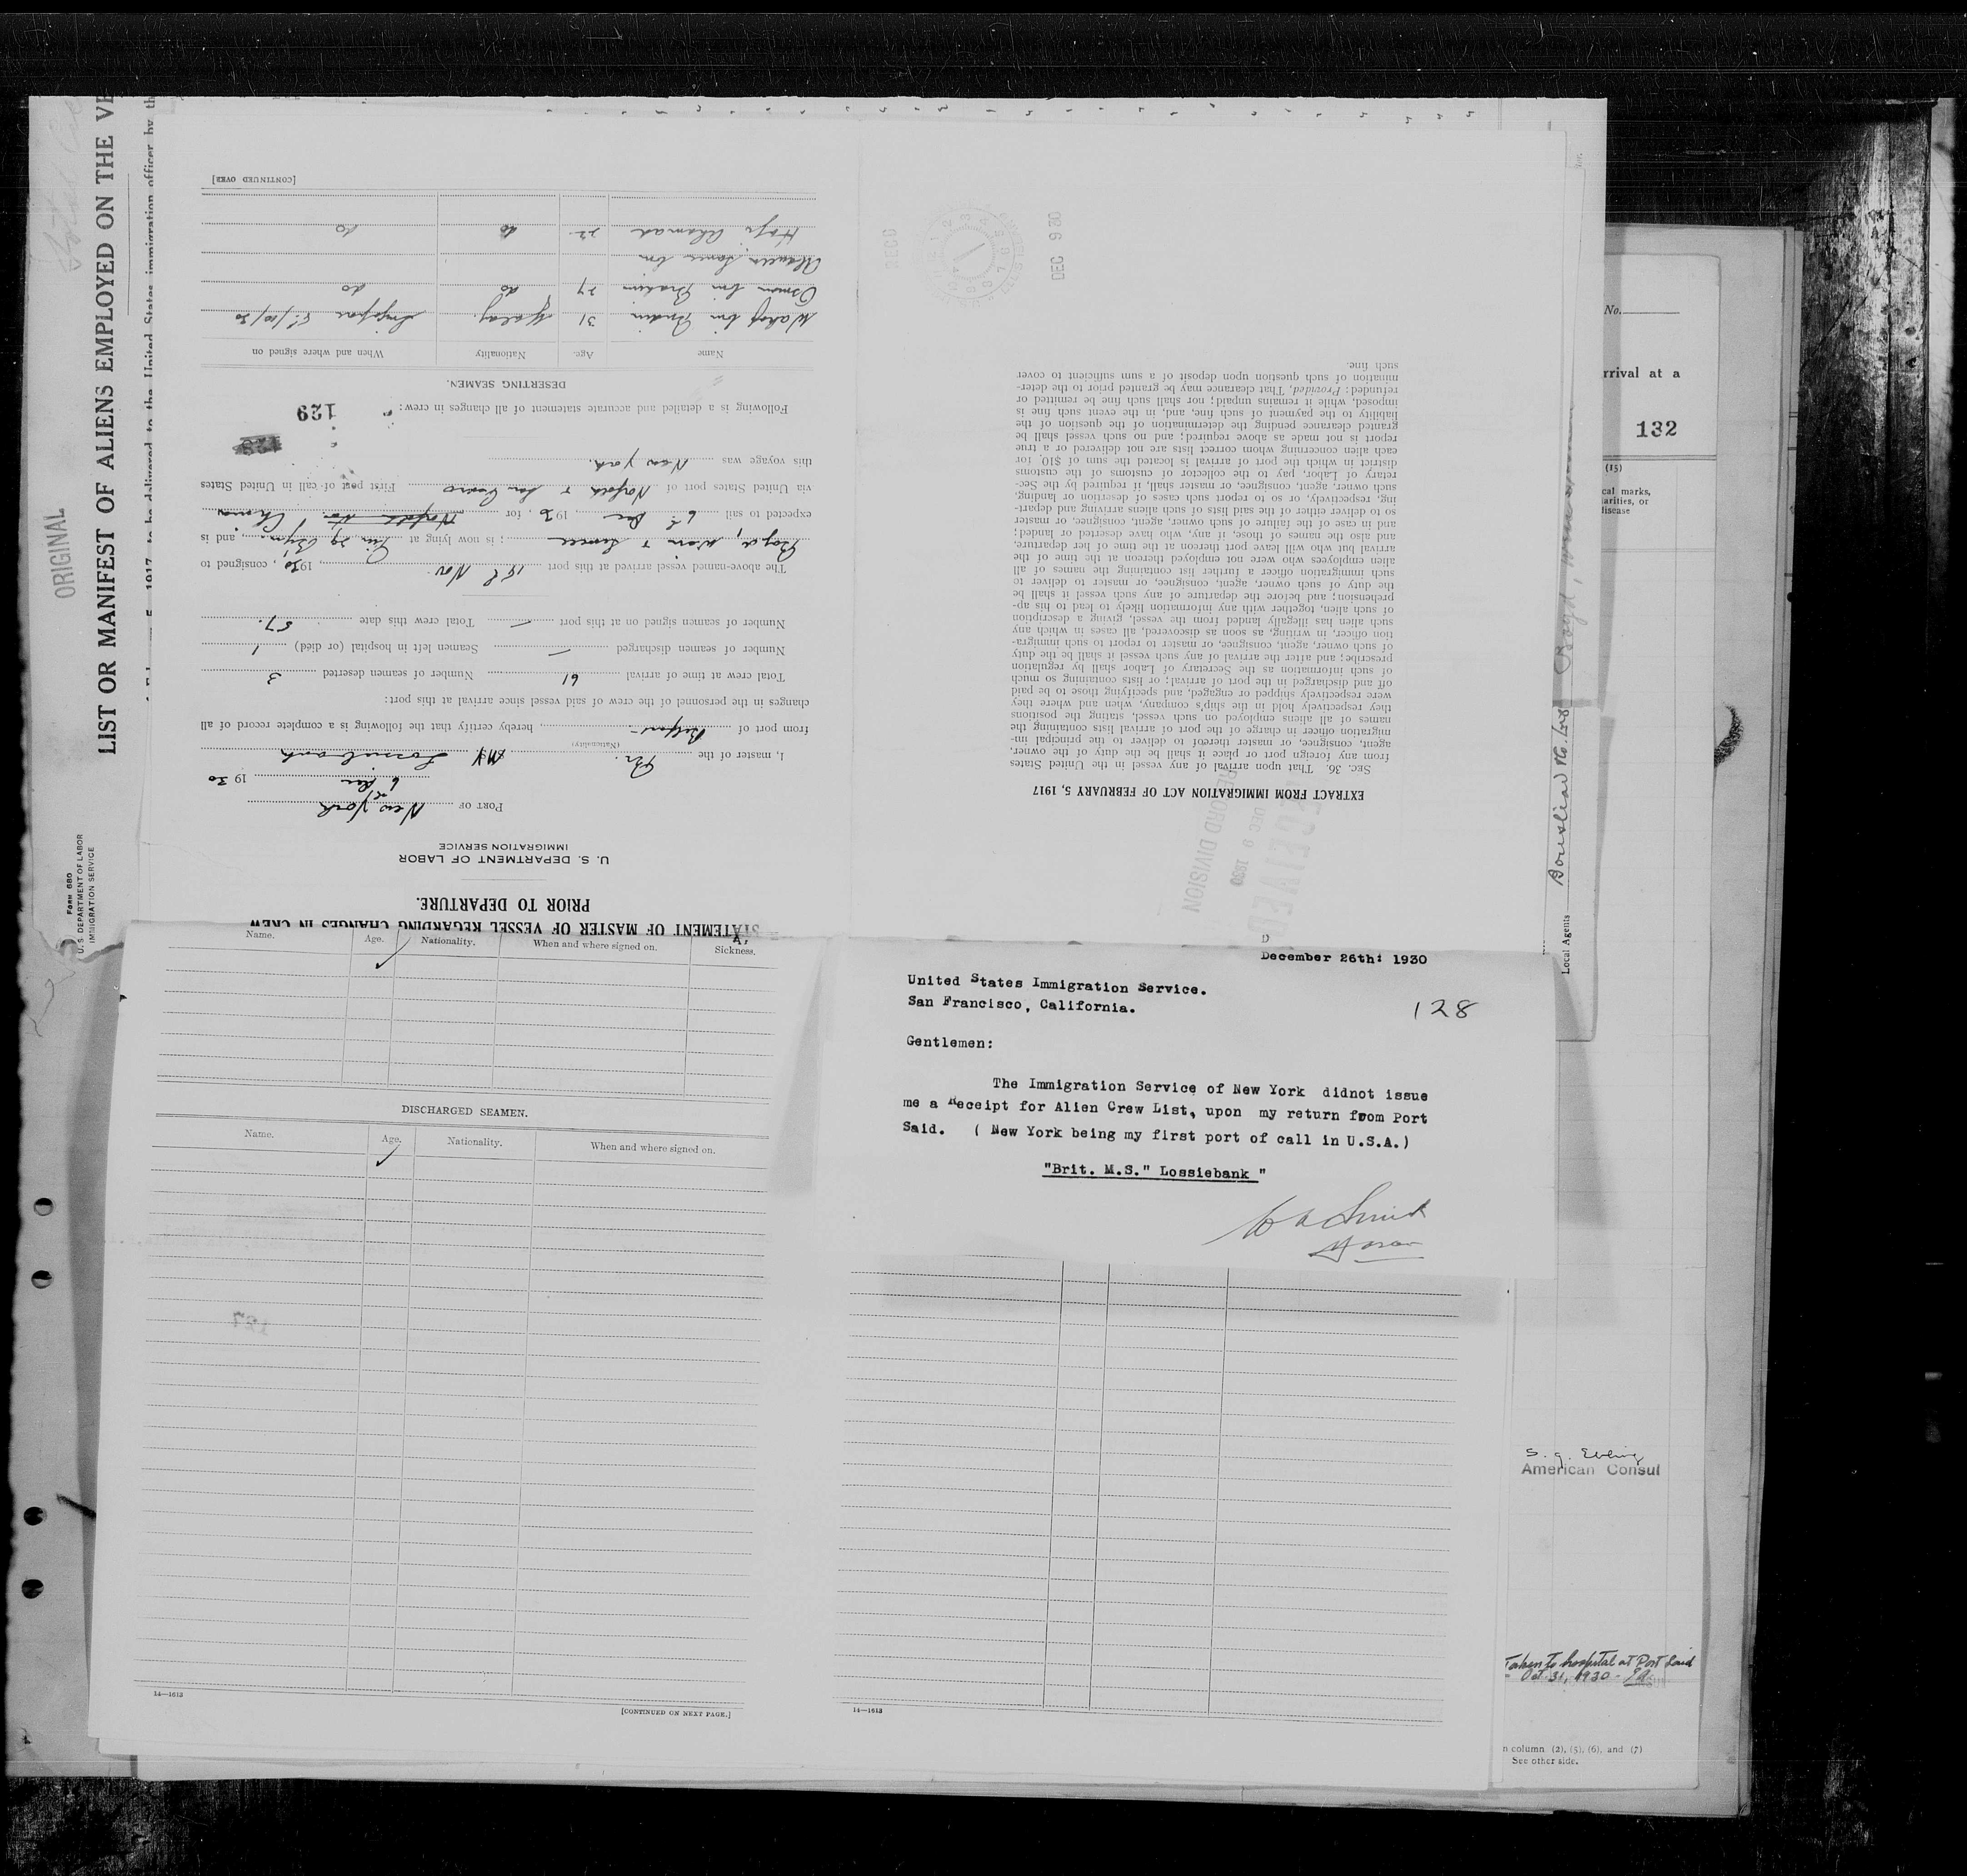 ORIGINAL
LIST OR MANIFEST OF ALIENS EMPLOYED ON THE VE
Form 680
U. S. DEPARTMENT OF LABOR
IMMIGRATION SERVICE
STATEMENT OF MASTER OF VESSEL REGARDING CHANGES IN CREW
PRIOR TO DEPARTURE.
U. S. DEPARTMENT OF LABOR
IMMIGRATION SERVICE
PORT OF New York
6th Dec 1930
I, master of the Br. M.V. Lossiebank
(Nationality)
from port of , hereby certify that the following is a complete record of all
changes in the personnel of the crew of said vessel since arrival at this port:
Total crew at time of arrival 61 Number of seamen deserted 3
Number of seamen discharged — Seamen left in hospital (or died) 1
Number of seamen signed on at this port — Total crew this date 57.
The above-named vessel arrived at this port Nov. , 1930, consigned to
Boyd, Weir & ; is now lying at Pier 29 Bkyn. and is
expected to sail 6th Dec , 1930, for Norfolk
via United States port of Norfolk & San First port of call in United States
this voyage was New York.
Following is a detailed and accurate statement of all changes in crew:
129
DESERTING SEAMEN.
Name Age. Nationality When and where signed on
31 Malay. /10/30
Osman bin 27 do do
bin
Haji Ahamad 22 do do
[CONTINUED OVER]
RECD
DEC 9 30
EXTRACT FROM IMMIGRATION ACT OF FEBRUARY 5, 1917
SEC. 36. That upon arrival of any vessel in the United States
from any foreign port or place it shall be the duty of the owner,
agent, consignee, or master thereof to deliver to the principal im-
migration officer in charge of the port of arrival lists containing the
names of all aliens employed on such vessel, stating the positions
they respectively hold in the ship's company, when and where they
were respectively shipped or engaged, and specifying those to be paid
off and discharged in the port of arrival; or lists containing so much
of such information as the Secretary of Labor shall by regulation
prescribe; and after the arrival of any such vessel it shall be the duty
of such owner, agent, consignee, or master to report to such immigra-
tion officer, in writing, as soon as discovered, all cases in which any
such alien has illegally landed from the vessel, giving a description
of such alien, together with any information likely to lead to his ap-
prehension; and before the departure of any such vessel it shall be
the duty of such owner, agent, consignee, or master to deliver to
such immigration officer a further list containing the names of all
alien employees who were not employed thereon at the time of the
arrival but who will leave port thereon at the time of her departure,
and also the names of those, if any, who have deserted or landed;
and in case of the failure of such owner, agent, consignee, or master
so to deliver either of the said lists of such aliens arriving and depart-
ing, respectively, or so to report such cases of desertion or landing,
such owner, agent, consignee, or master shall, if required by the Sec-
retary of Labor, pay to the collector of customs of the customs
district in which the port of arrival is located the sum of $10 for
each alien concerning whom correct lists are not delivered or a true
report is not made as above required; and no such vessel shall be
granted clearance pending the determination of the question of the
liability to the payment of such fine, and, in the event such fine is
imposed, while it remains unpaid; nor shall such fine be remitted or
refunded: Provided, That clearance may be granted prior to the deter-
mination of such question upon deposit of a sum sufficient to cover
such fine.
RECEIVED
DEC 9 1930
RECORD DIVISION
Name. Age. Nationality. When and where signed on. Sickness.
DISCHARGED SEAMEN.
Name. Age. Nationality. When and where signed on.
127
14—1613
[CONTINUED ON NEXT PAGE.]
14—1613
December 26th: 1930
United States Immigration Service.
San Francisco, California.
128
Gentlemen:
The Immigration Service of New York didnot issue
me a Receipt for Alien Crew List, upon my return from Port
Said. ( New York being my first port of call in U.S.A.)
"Brit. M.S." Lossiebank "
Smith
Local Agents
No.
rrival at a
132
(15)
cal marks,
arities, or
disease
American Consul
Taken to hospital at Port Said
Oct. 31, 1930 -
n column (2), (5), (6), and (7)
See other side.